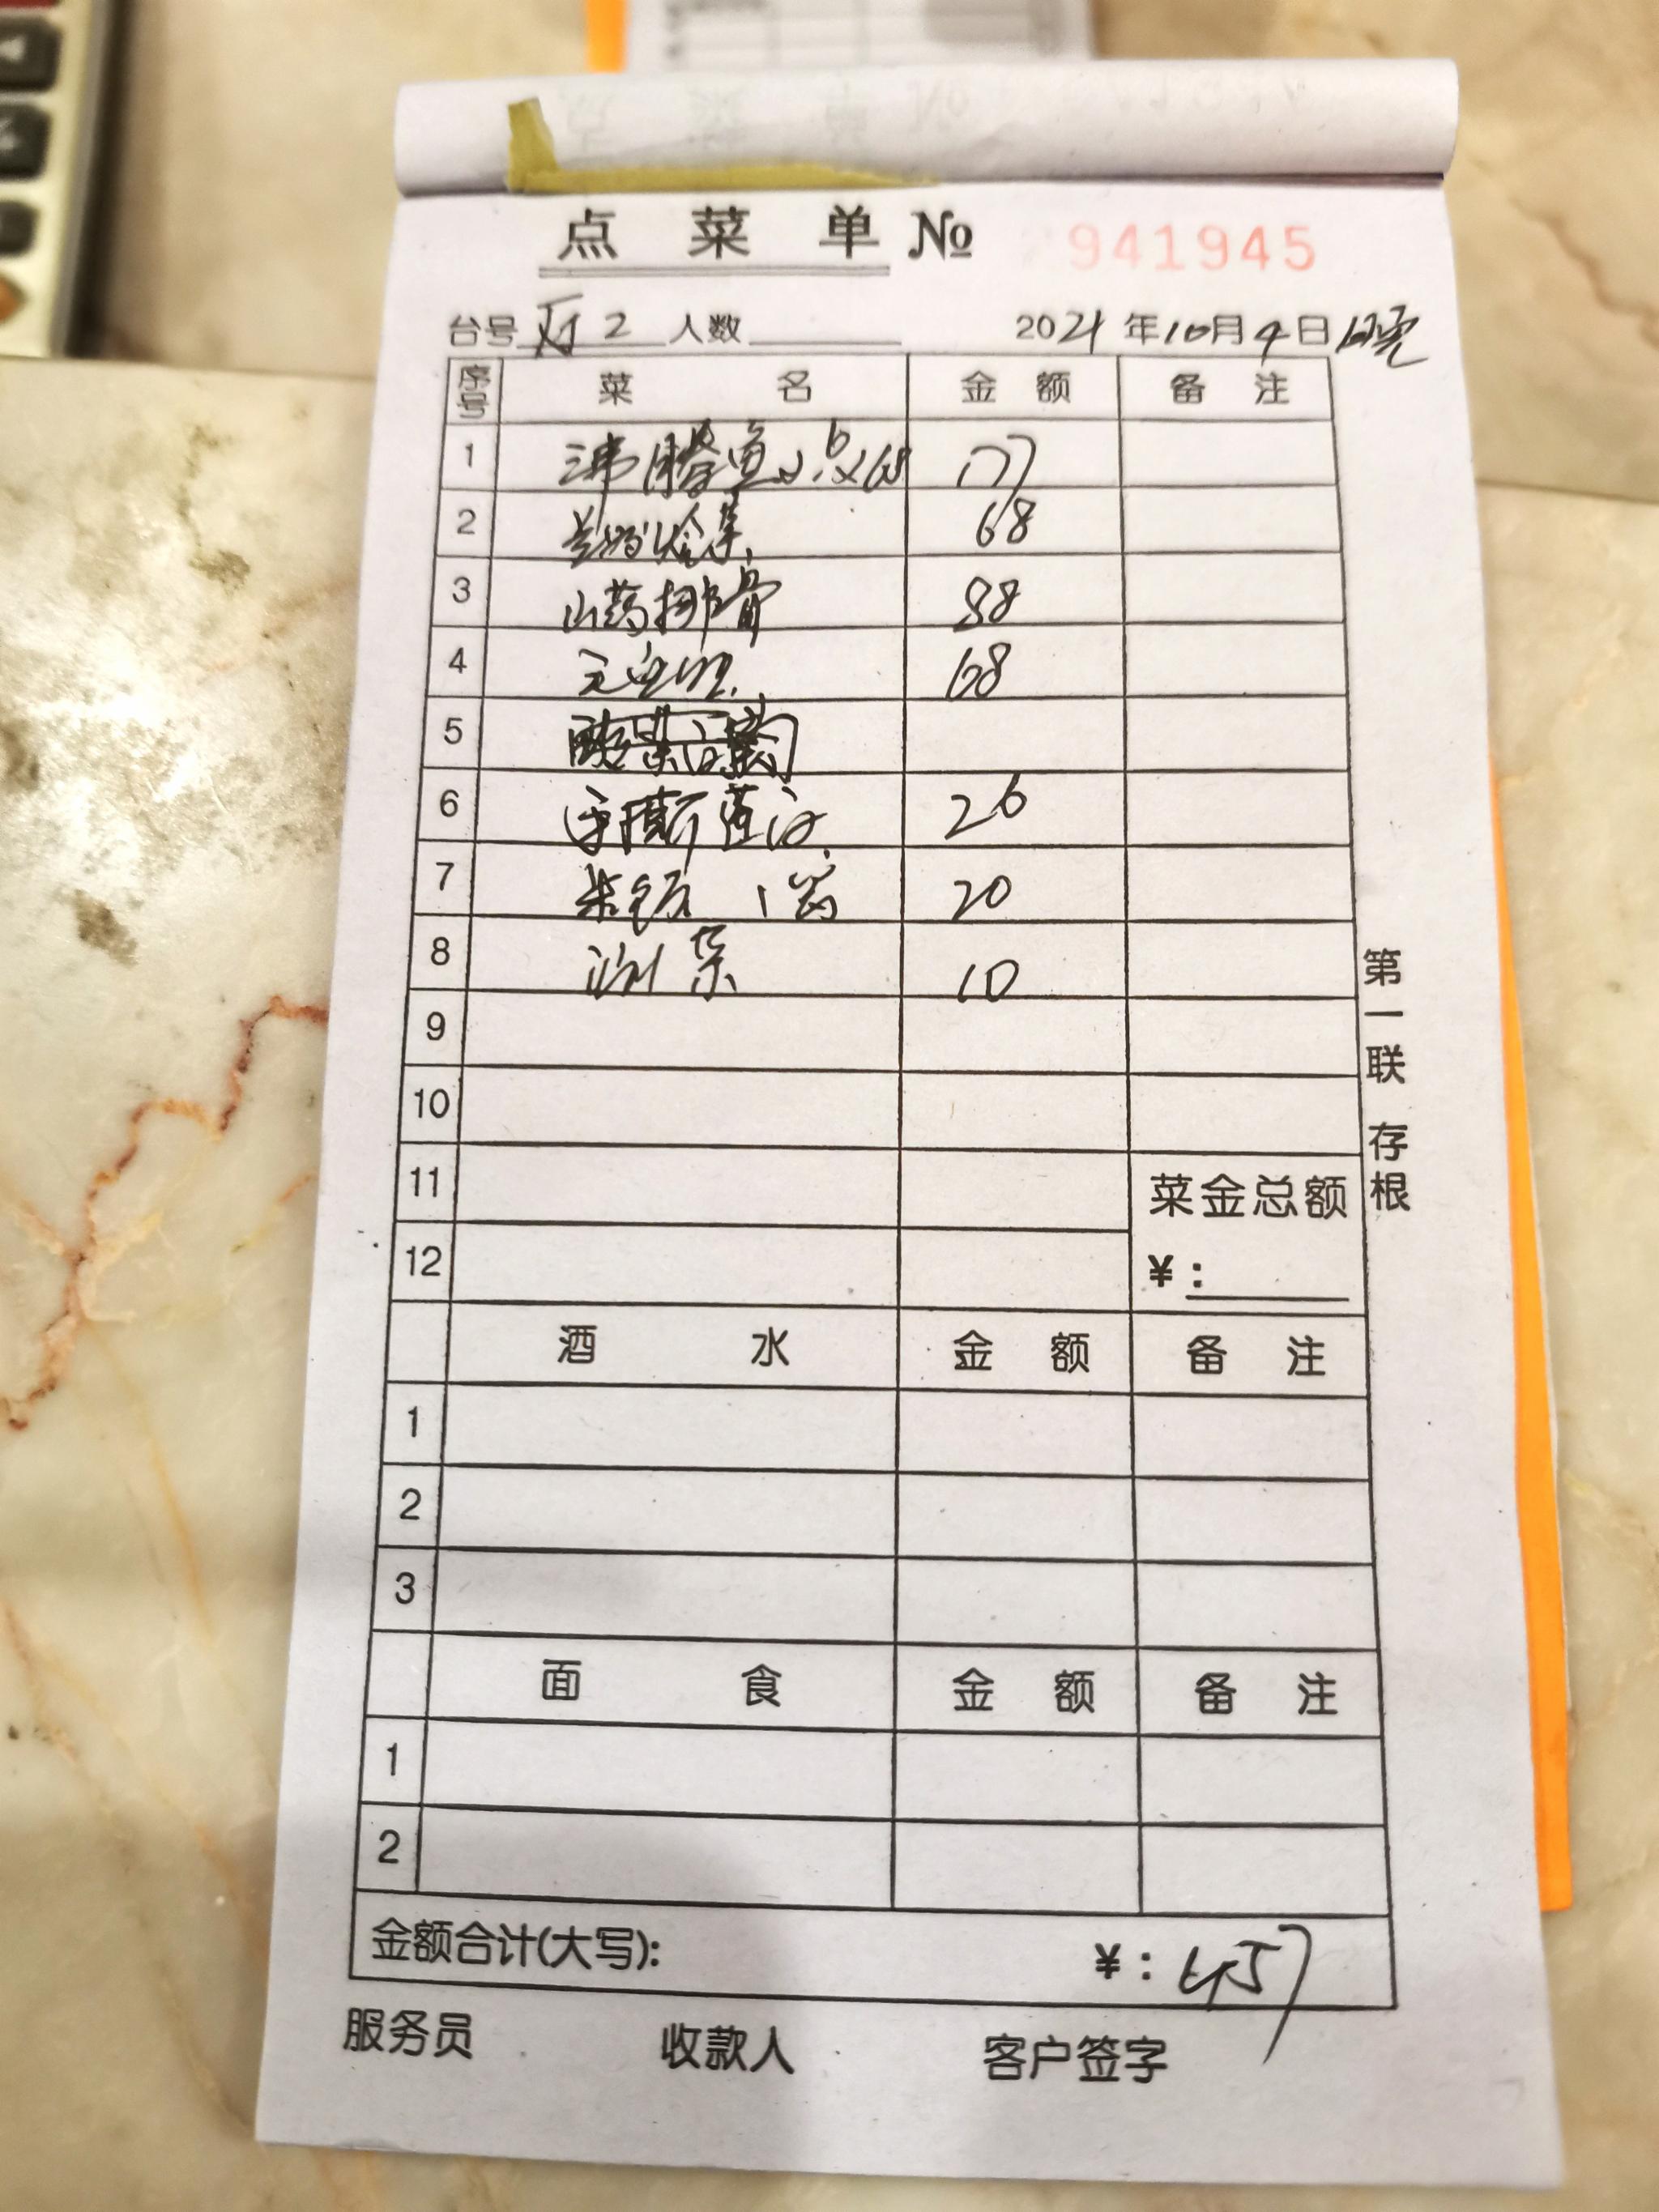 点 菜 单 № 941945
台号 厅2 人数 2021年10月4日 晚
序号 菜 名 金 额 备 注
1 沸腾鱼 177
2 68
3 山药排骨 88
4 68
5
6 手撕莲白 26
7 20
8 泡菜 10
9
10
11 菜金总额
12 ¥:
酒 水 金 额 备 注
1
2
3
面 食 金 额 备 注
1
2
金额合计(大写): ¥: 457
服务员 收款人 客户签字
第一联 存根